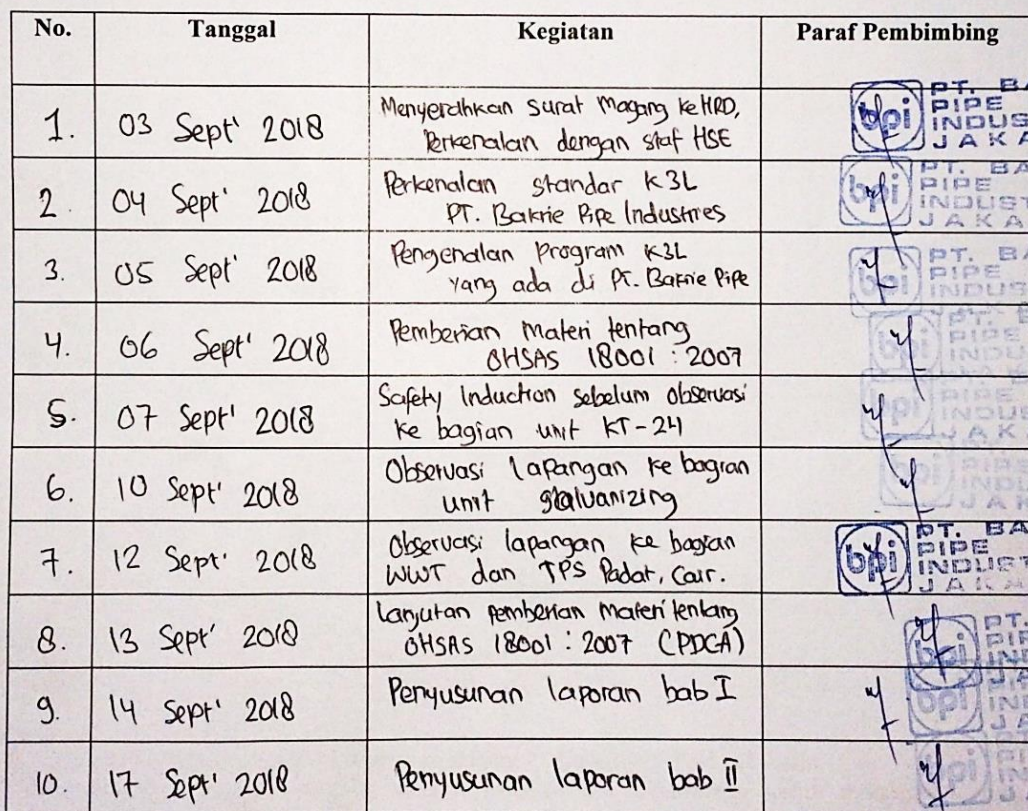 No. Tanggal Kegiatan Paraf Pembimbing
1. 03 Sept' 2018 Menyerahkan surat magang ke HRD,
Perkenalan dengan staf HSE
PT. BA
PIPE
INDUS
JAKA
bpi
2. 04 Sept' 2018 Perkenalan standar K3L
PT. Bakrie Pipe Industries
PT. BA
PIPE
INDUST
JAKA
bpi
3. 05 Sept' 2018 Pengenalan program K3L
yang ada di PT. Bakrie Pipe
PT. BA
PIPE
INDUS
bpi
4. 06 Sept' 2018 Pemberian materi tentang
OHSAS 18001 : 2007
PIPE
INDU
bpi
5. 07 Sept' 2018 Safety Induction sebelum observasi
ke bagian unit KT-24
PIPE
INDUS
JAK
bpi
6. 10 Sept' 2018 Observasi lapangan ke bagian
unit galvanizing
PIPE
INDU
JAK
bpi
7. 12 Sept' 2018 Observasi lapangan ke bagian
WWT dan TPS Padat, Cair.
PT. BA
PIPE
INDUST
JAKA
bpi
8. 13 Sept' 2018 Lanjutan pemberian materi tentang
OHSAS 18001 : 2007 (PDCA)
PT.
PIP
IND
bpi
9. 14 Sept' 2018 Penyusunan laporan bab I
PI
IND
JA
bpi
10. 17 Sept' 2018 Penyusunan laporan bab II
PI
IND
J
bpi